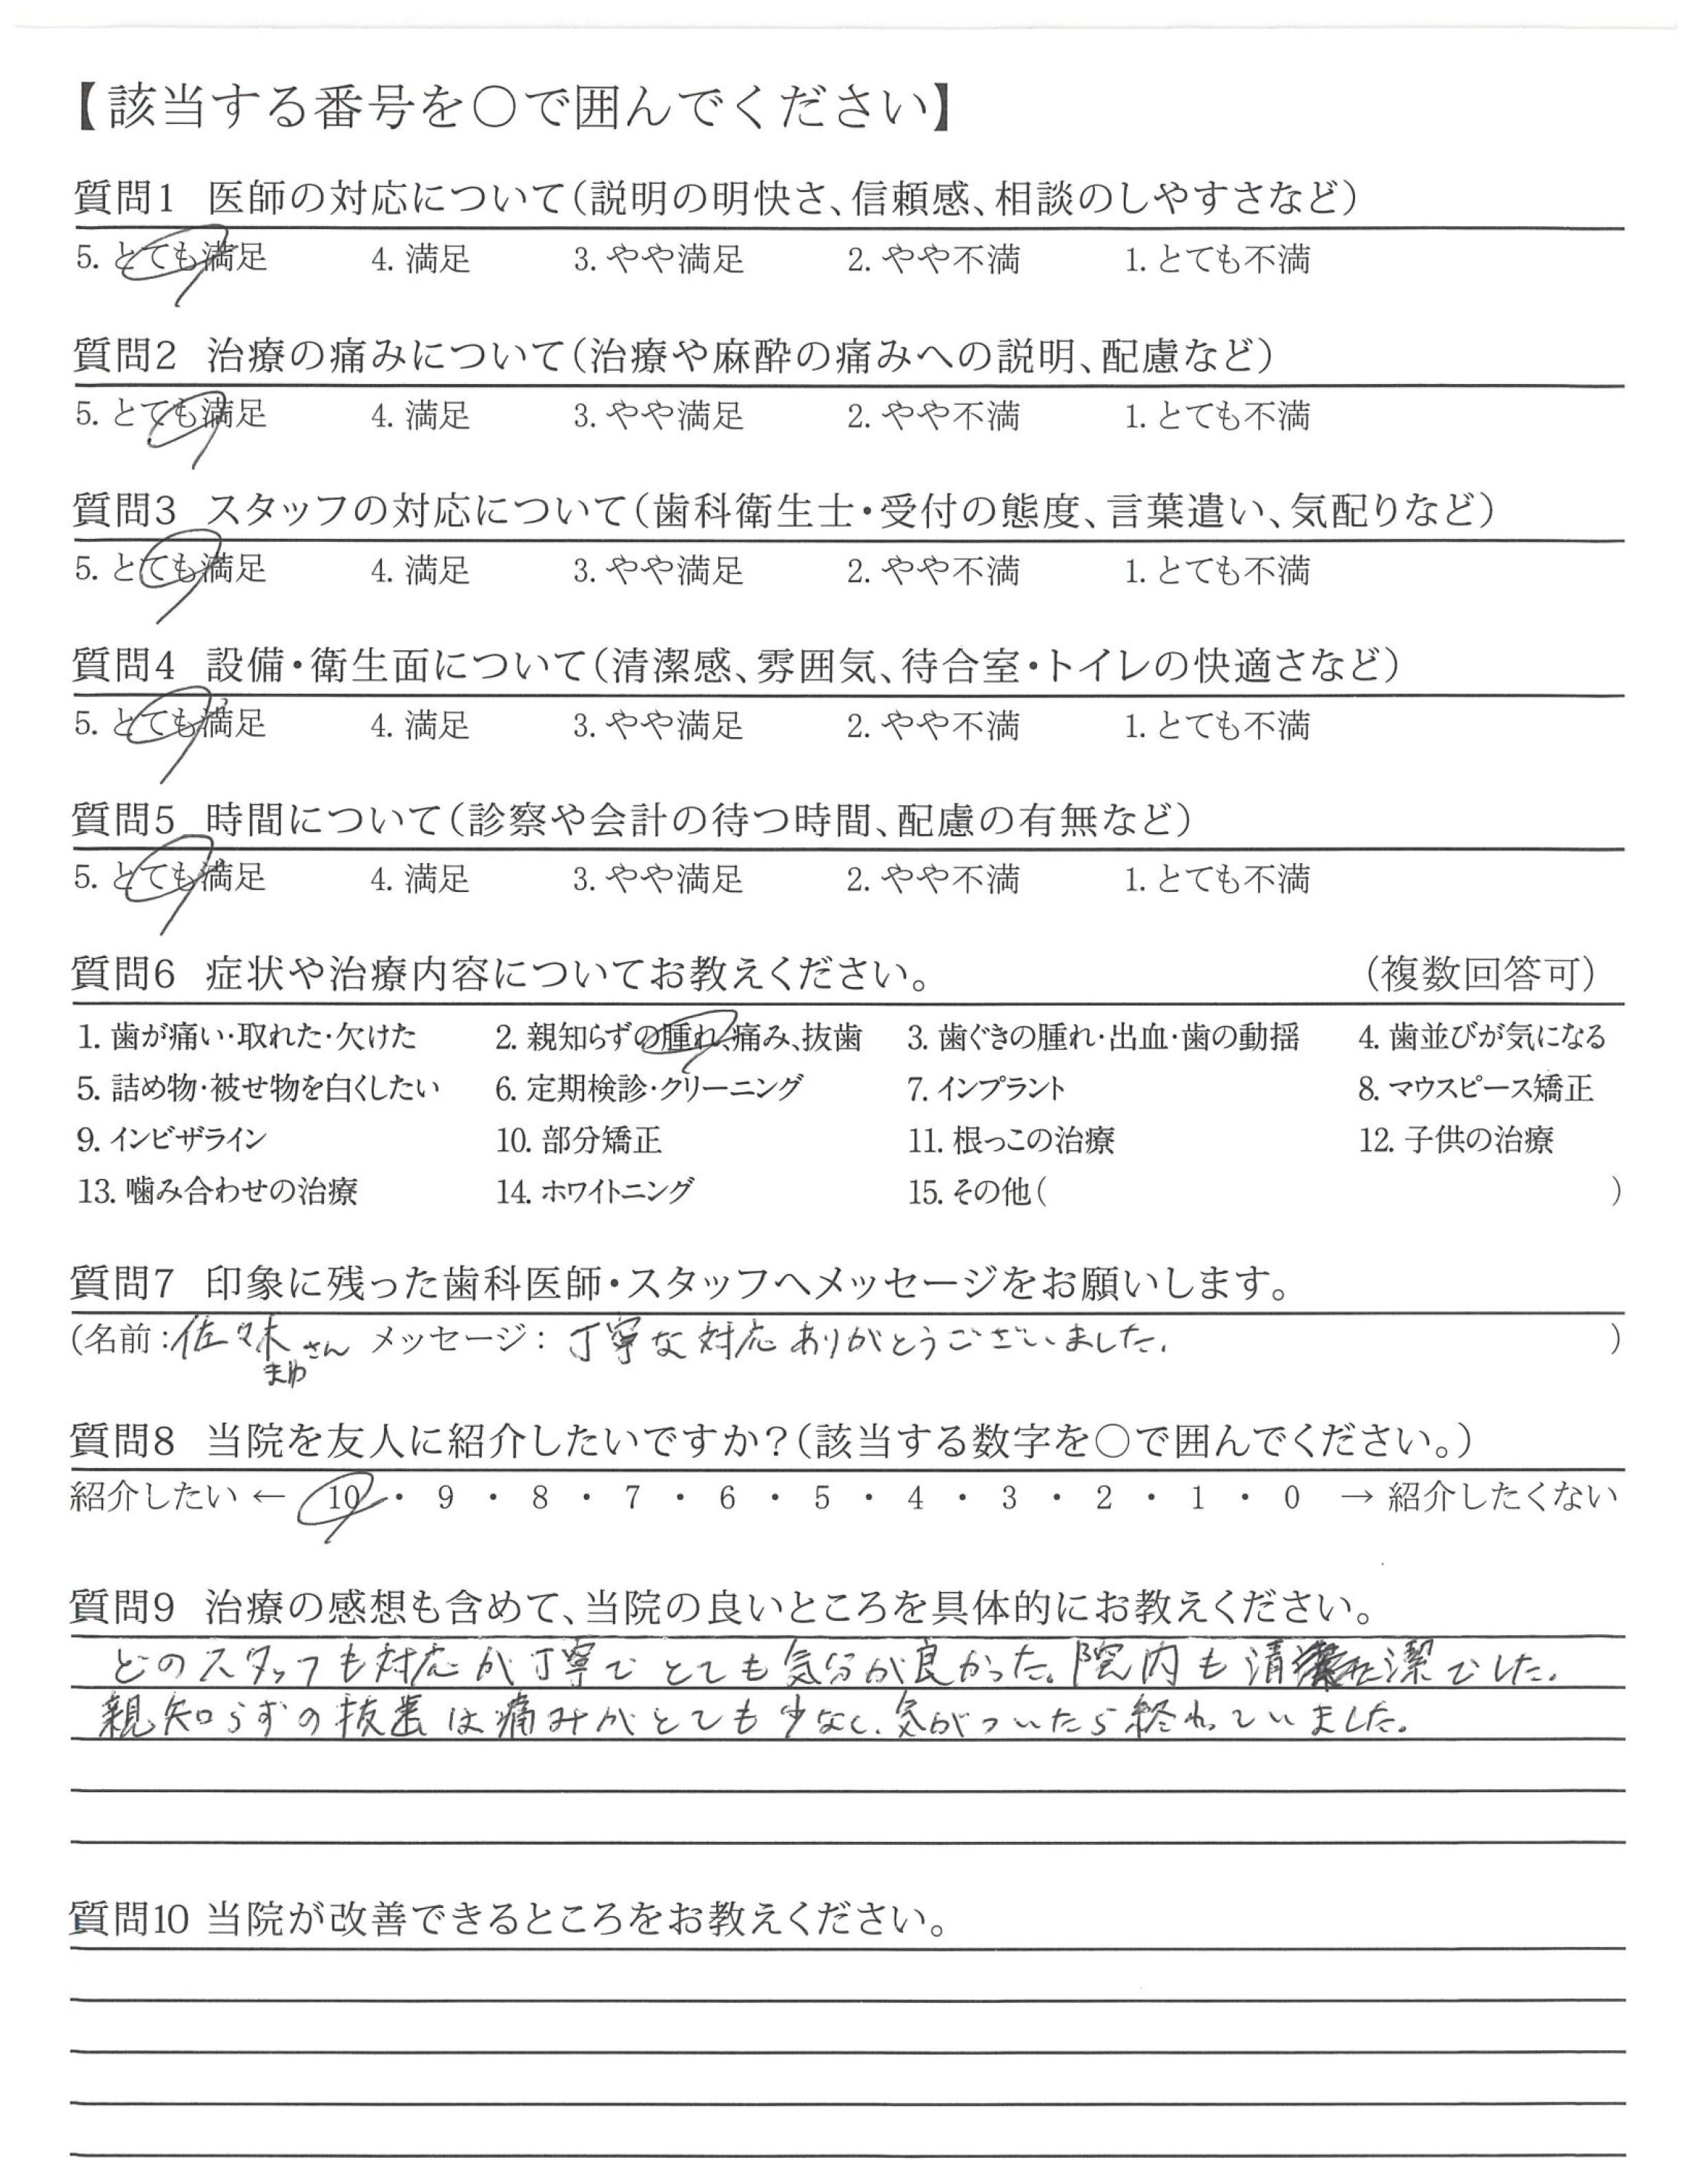 【該当する番号を○で囲んでください】
質問1 医師の対応について(説明の明快さ、信頼感、相談のしやすさなど)
5. とても満足 4. 満足 3. やや満足 2. やや不満 1. とても不満
質問2 治療の痛みについて(治療や麻酔の痛みへの説明、配慮など)
5. とても満足 4. 満足 3. やや満足 2. やや不満 1. とても不満
質問3 スタッフの対応について(歯科衛生士・受付の態度、言葉遣い、気配りなど)
5. とても満足 4. 満足 3. やや満足 2. やや不満 1. とても不満
質問4 設備・衛生面について(清潔感、雰囲気、待合室・トイレの快適さなど)
5. とても満足 4. 満足 3. やや満足 2. やや不満 1. とても不満
質問5 時間について(診察や会計の待つ時間、配慮の有無など)
5. とても満足 4. 満足 3. やや満足 2. やや不満 1. とても不満
質問6 症状や治療内容についてお教えください。 (複数回答可)
1. 歯が痛い・取れた・欠けた 2. 親知らずの腫れ、痛み、抜歯 3. 歯ぐきの腫れ・出血・歯の動揺 4. 歯並びが気になる
5. 詰め物・被せ物を白くしたい 6. 定期検診・クリーニング 7. インプラント 8. マウスピース矯正
9. インビザライン 10. 部分矯正 11. 根っこの治療 12. 子供の治療
13. 噛み合わせの治療 14. ホワイトニング 15. その他( )
質問7 印象に残った歯科医師・スタッフへメッセージをお願いします。
(名前:佐々木さん メッセージ: 丁寧な対応ありがとうございました。 )
まゆ
質問8 当院を友人に紹介したいですか?(該当する数字を○で囲んでください。)
紹介したい ← 10 ・ 9 ・ 8 ・ 7 ・ 6 ・ 5 ・ 4 ・ 3 ・ 2 ・ 1 ・ 0 → 紹介したくない
質問9 治療の感想も含めて、当院の良いところを具体的にお教えください。
どのスタッフも対応が丁寧でとても気分が良かった。院内も清潔でした。
親知らずの抜歯は痛みがとても少なく、気がついたら終わっていました。
質問10 当院が改善できるところをお教えください。